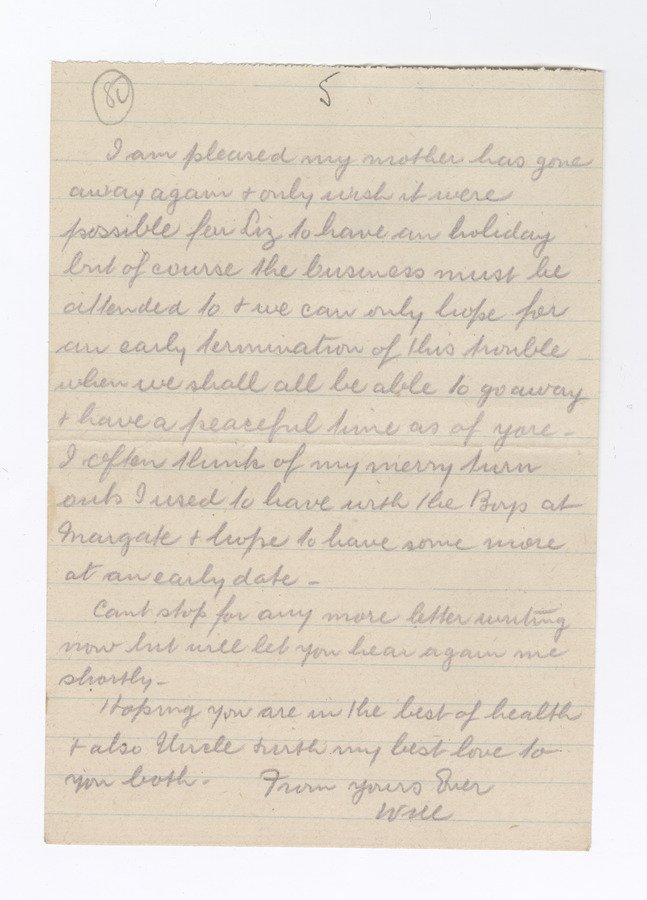 80
5
I am pleased my mother has gone
away again + only wish it were
possible for Liz to have an holiday
but of course the business must be
attended to + we can only hope for
an early termination of this trouble
when we shall all be able to go away
+ have a peaceful time as of yore -
I often think of my merry turn
outs I used to have with the Boys at
Margate + hope to have some more
at an early date -
Cant stop for any more letter writing
now but will let you hear again me
shortly -
Hoping you are in the best of health
+ also Uncle + with my best love to
you both - From yours Ever
Will